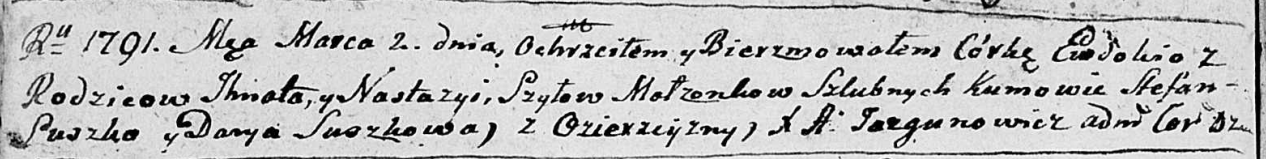 Rᵘ 1791. Mça Marca 2. dnia, Ochrzciłem y Bierzmowałem Córkę Ewdokio z
Rodzicow Ihnata, y Nastazyi, Szyłow Małżonkow Szlubnych Kumowie Stefan
Suszko y Darya Suszkowa, z Ozierzczyzny, X A. Jazgunowicz adm